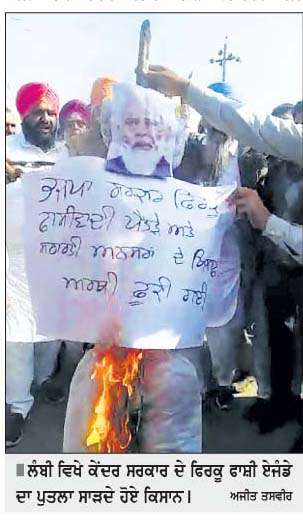 ਭਾਜਪਾ ਸਰਕਾਰ ਫਿਰਕੂ
ਫਾਸੀਵਾਦੀ ਏਜੰਡੇ ਅਤੇ
ਅਨਸਰਾਂ ਦੇ ਖਿਲਾਫ
ਅਰਥੀ ਫੂਕੀ ਗਈ
ਲੰਬੀ ਵਿਖੇ ਕੇਂਦਰ ਸਰਕਾਰ ਦੇ ਫਿਰਕੂ ਫਾਸ਼ੀ ਏਜੰਡੇ
ਦਾ ਪੁਤਲਾ ਸਾੜਦੇ ਹੋਏ ਕਿਸਾਨ। ਅਜੀਤ ਤਸਵੀਰ